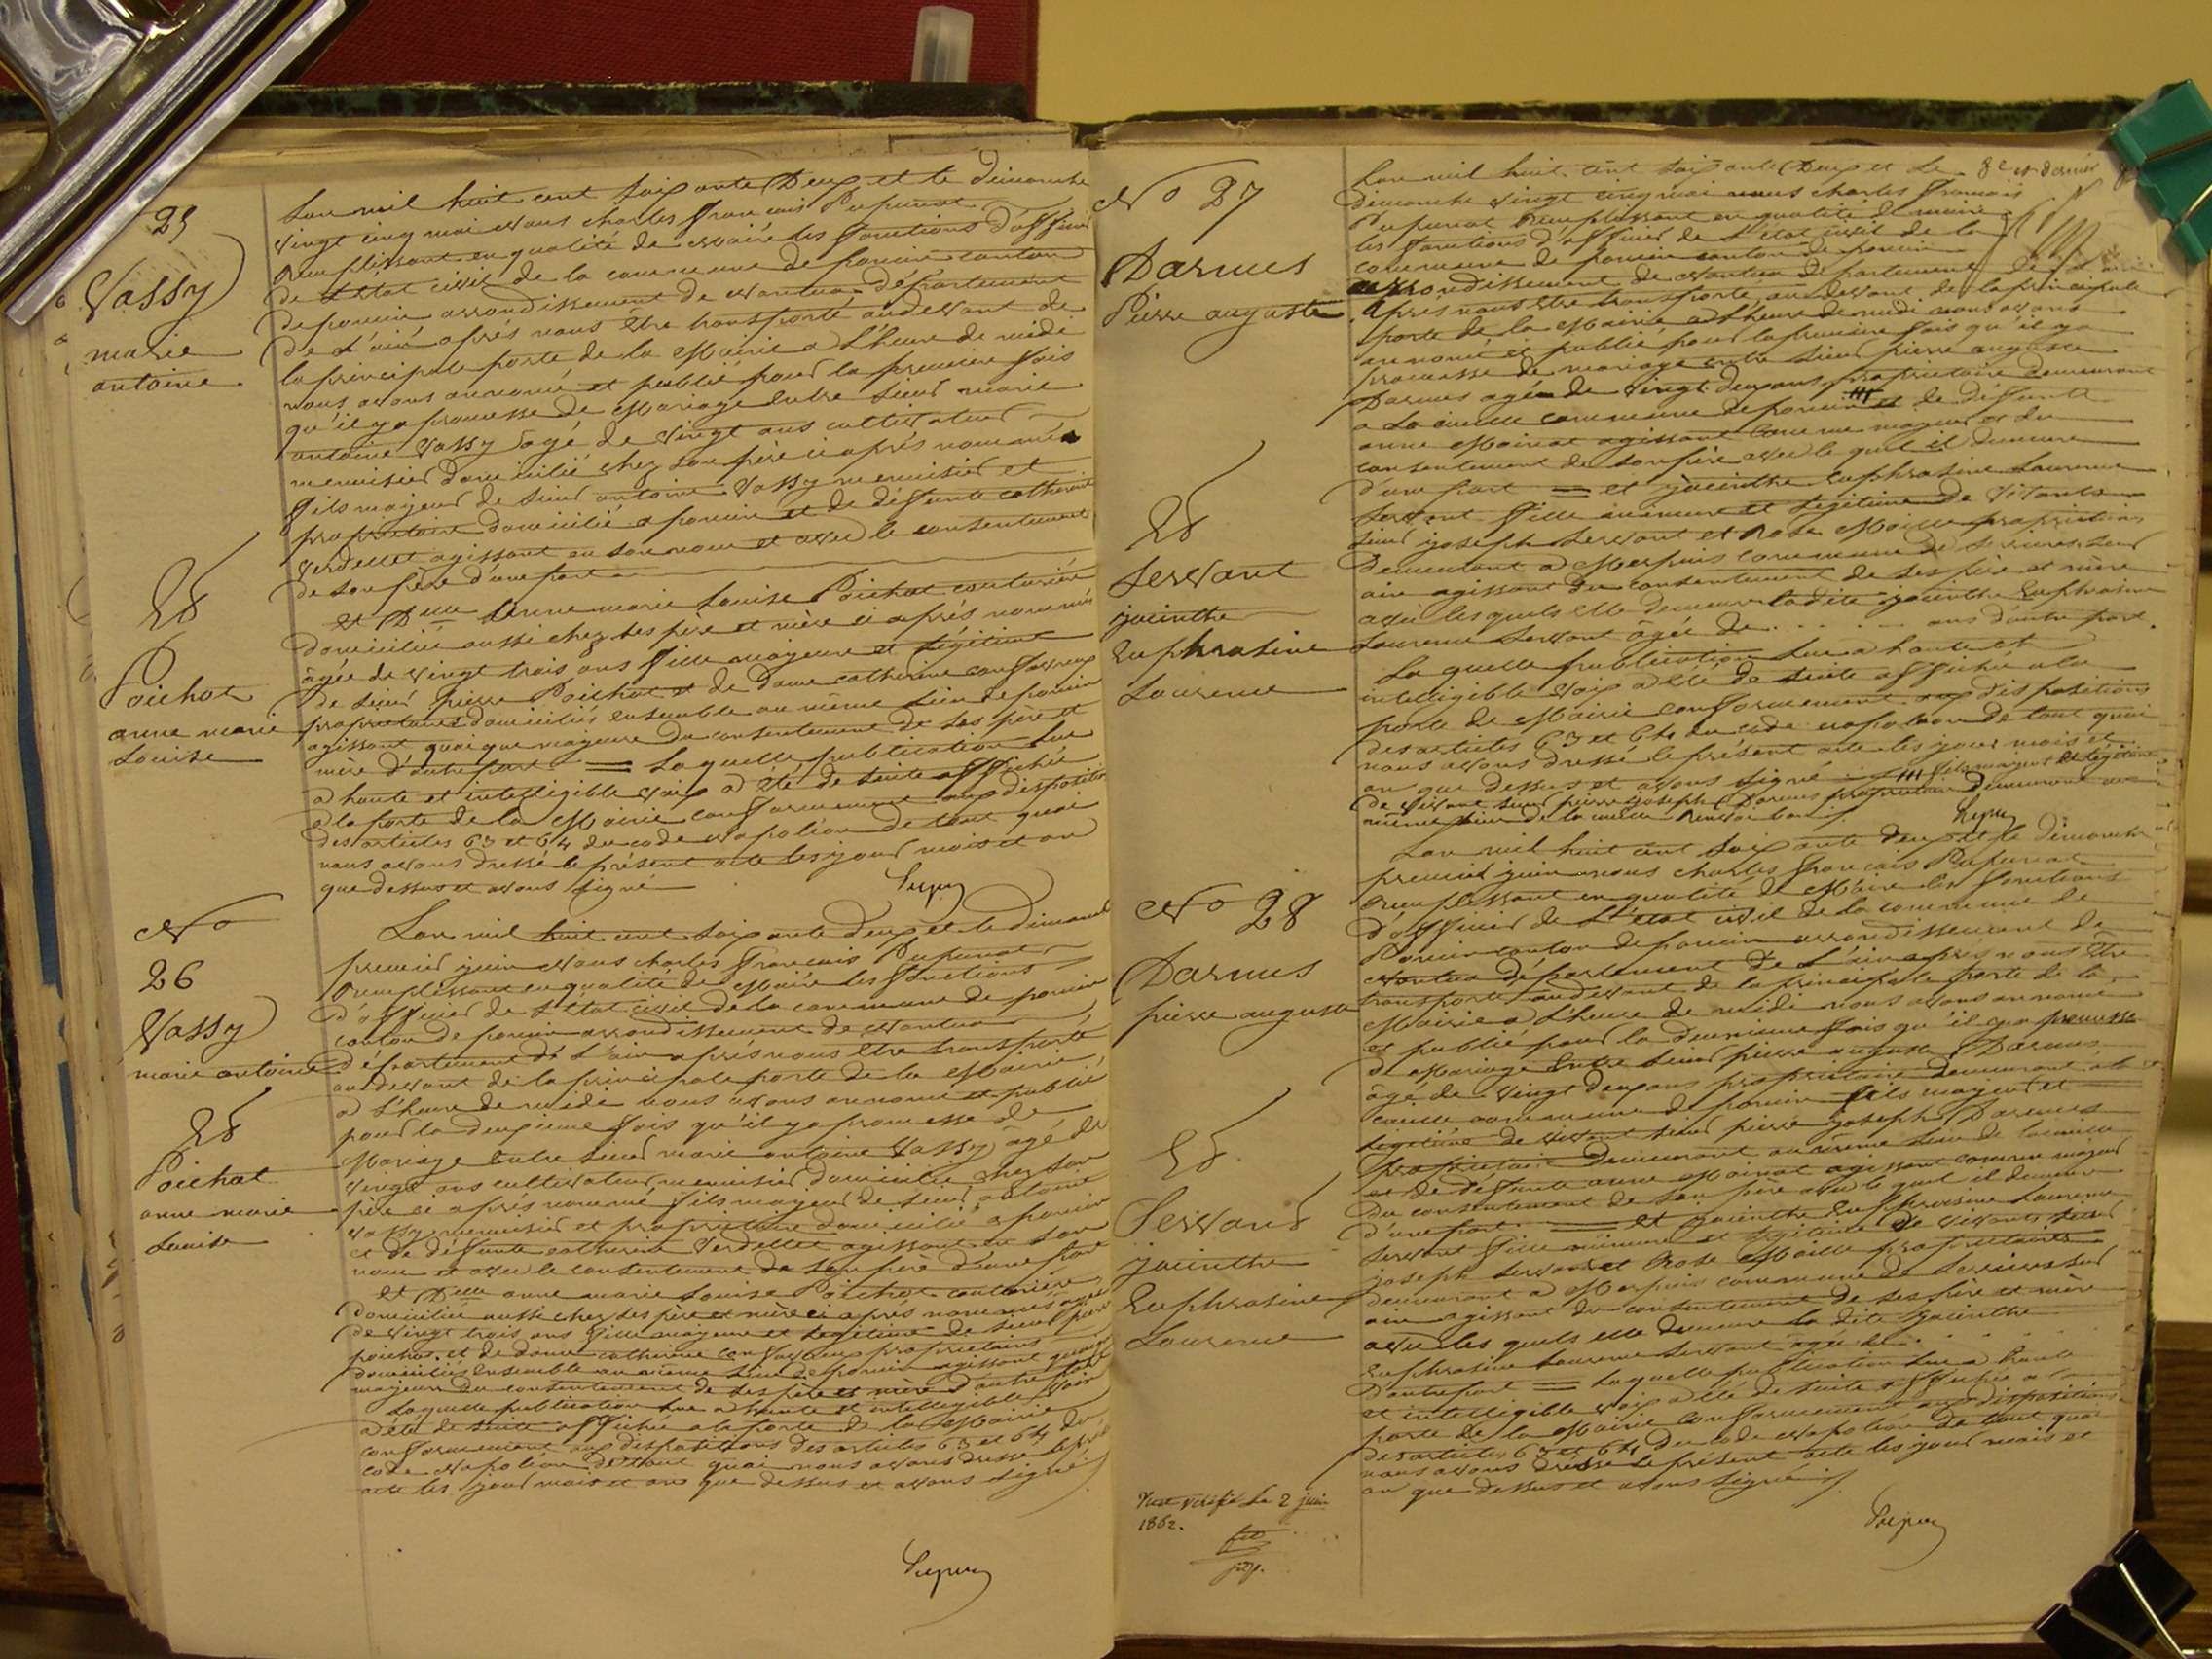 25
Vassy
marie
antoine
Et
Poichot
anne marie
Louise
L'an mil huit cent soixante Deux et le dimanche
vingt cinq mai Nous charles francois Pupunat
Remplissant en qualité de Maire les fonctions d'officier
de L'Etat civil de la commune de poncin canton
de poncin arrondissement de Nantua département
de L'ain après nous être transporté au devant de
la principale porte de la Mairie a L'heure de midi
nous avons annoncé et publié pour la premiere fois
qu'il y a promesse de Mariage Entre sieur marie
antoine Vassy agé de vingt ans cultivateur
menuisier domicilié chez son père ci après nommé
fils majeur de sieur antoine Vassy menuisier et
propriétaire domicilié a poncin et de défunte catherine
Verdellet agissant en son nom et avec le consentement
de son père d'une part
et Delle Anne marie Louise Poichot couturière
domiciliée aussi chez ses père et mère ci après nommés
âgée de vingt trois ans fille majeure et légitime
de sieur pierre Poichot et de dame catherine
propriétaires domiciliés ensemble au même lieu de poncin
agissant quoique majeure du consentement de ses père et
mère d'autre part = Laquelle publication lue
a haute et intelligible voix a été de suite affichée
a la porte de la Mairie conformement aux dispositions
des articles 63 et 64 du code Napoléon de tout quoi
nous avons dressé le présent acte les jour mois et an
que dessus et avons signé
No
26
Vassy
marie antoine
Et
Poichot
anne marie
Louise
L'an mil huit cent soixante deux et le dimanche
premier juin Nous charles francois Pupunat
Remplissant en qualité de Maire les fonctions
d'officier de L'Etat civil de la commune de poncin
canton de poncin arrondissement de Nantua
département de L'ain après nous être transporté
au devant de la principale porte de la Mairie
a L'heure de midi nous avons annoncé et publié
pour la deuxieme fois qu'il y a promesse de
Mariage Entre sieur marie antoine Vassy âgé de
vingt ans cultivateur menuisier domicilié chez son
père ci après nommé fils majeur de sieur antoine
Vassy menuisier et propriétaire domicilié a poncin
et de défunte catherine Verdellet agissant en son
nom et avec le consentement de son père d'une part
et Delle anne marie Louise Poichot couturière
domiciliée aussi chez ses père et mère ci après nommés agée
de vingt trois ans fille majeure et légitime de sieur pierre
poichot et de dame catherine propriétaires
domiciliés ensemble au même lieu de poncin agissant quoique
majeure du consentement de ses père et mère d'autre part
Laquelle publication lue a haute et intelligible voix
a été de suite affichée a la porte de la Mairie
conformement aux dispositions des articles 63 et 64 du
code Napoléon de tout quoi nous avons dressé le présent
acte les jour mois et an que dessus et avons signé
No 27
Darmes
Pierre auguste
Et
Servant
jacinthe
Euphrasine
Laurence
L'an mil huit cent soixante Deux et Le 8e et dernier
dimanche vingt cinq mai nous charles francois
Pupunat Remplissant en qualité de maire
les fonctions d'officier de L'état civil de la
commune de poncin canton de poncin
arrondissement de Nantua département de L'ain
après nous être transporté au devant de la principale
porte de la Mairie a L'heure de midi nous avons
annoncé et publié pour la premiere fois qu'il y a
promesse de mariage entre sieur pierre auguste
Darmes agé de vingt deux ans propriétaire demeurant
a La cueille commune de poncin et de défunte
anne Moinat agissant comme majeur et du
consentement de son père avec le quel il demeure
d'une part = et jacinthe Euphrasine Laurence
Servant fille mineure et légitime de vivants
sieur joseph Servant et Rose Moille propriétaires
demeurant a Merpuis commune de Serrieres sur
ain agissant du consentement de ses père et mère
avec les quels elle demeure la dite jacinthe Euphrasine
Laurence Servant âgée de . . . . ans d'autre part.
La quelle publication lue a haute et
intelligible voix a été de suite affichée a la
porte de Mairie conformement aux dispositions
des articles 63 et 64 du code napoléon de tout quoi
nous avons dressé le présent acte les jour mois et
an que dessus et avons signé fils majeur et légitime
de vivant sieur pierre joseph Darmes propriétaire demeurant au
même lieu de la cueille Renvoi bon
No 28
Darmes
pierre auguste
Et
Servant
jacinthe
Euphrasine
Laurence
L'an mil huit cent soixante deux et le dimanche
premier juin nous charles francois Pupunat
Remplissant en qualité de Maire les fonctions
d'officier de L'état civil de la commune de
Poncin canton de poncin arrondissement de
Nantua département de L'ain après nous être
transporté au devant de la principale porte de la
Mairie a L'heure de midi nous avons annoncé
et publié pour la deuxieme fois qu'il y a promesse
de Mariage Entre sieur pierre auguste Darmes
âgé de vingt deux ans propriétaire demeurant a la
cueille commune de poncin fils majeur et
légitime de vivant sieur pierre joseph Darmes
propriétaire demeurant au même lieu de la cueille
et de défunte anne Moinat agissant comme majeur
du consentement de son père avec le quel il demeure
d'une part = et jacinthe Euphrasine Laurence
Servant fille mineure et légitime de vivants sieur
joseph Servant et Rose Moille propriétaires
demeurant a Merpuis commune de Serrieres sur
ain agissant du consentement de ses père et mère
avec les quels elle demeure la dite jacinthe
Euphrasine Laurence Servant agée de
d'autre part = Laquelle publication lue a haute
et intelligible voix a été de suite affichée a la
porte de la Mairie conformement aux dispositions
des articles 63 et 64 du code Napoléon de tout quoi
nous avons dressé le présent acte les jour mois et
an que dessus et avons signé
Vu et vérifié Le 2 juin
1862.